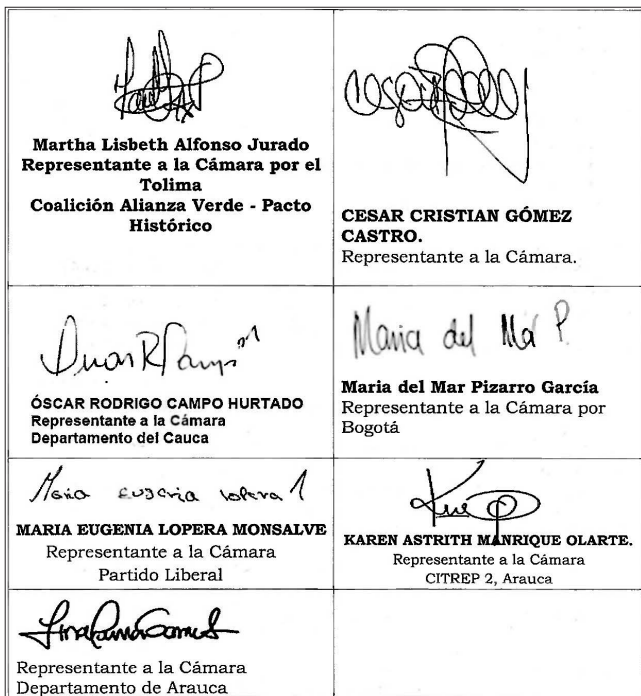 Martha Lisbeth Alfonso Jurado
Representante a la Cámara por el
Tolima
Coalición Alianza Verde - Pacto
Histórico
CESAR CRISTIAN GÓMEZ
CASTRO.
Representante a la Cámara.
ÓSCAR RODRIGO CAMPO HURTADO
Representante a la Cámara
Departamento del Cauca
Maria del Mar P.
Maria del Mar Pizarro García
Representante a la Cámara por
Bogotá
Maria Eugenia Lopera
MARIA EUGENIA LOPERA MONSALVE
Representante a la Cámara
Partido Liberal
KAREN ASTRITH MANRIQUE OLARTE.
Representante a la Cámara
CITREP 2, Arauca
Representante a la Cámara
Departamento de Arauca